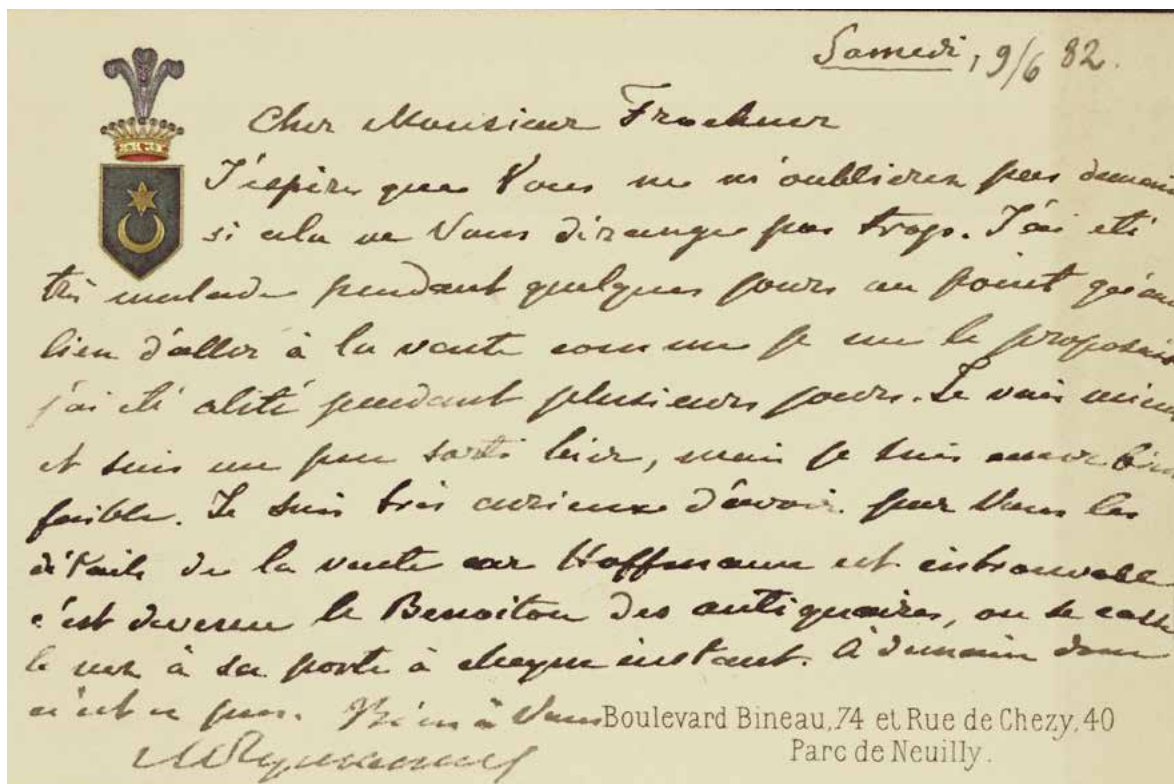 Samedi, 9/6 82.
Cher Monsieur Froehner
J'espère que Vous ne m'oublierez pas demain
si cela ne Vous dérange pas trop. J'ai été
très malade pendant quelques jours au point qu'au
lieu d'aller à la vente comme je me le proposais
j'ai été alité pendant plusieurs jours. Je vais mieux
et suis un peu sorti hier, mais je suis encore bien
faible. Je suis très curieux d'avoir par Vous les
détails de la vente car Hoffmann est introuvable
c'est devenu le Benoiton des antiquaires, on se casse
le nez à sa porte à chaque instant. À demain donc
n'est ce pas. Bien à Vous
Boulevard Bineau, 74 et Rue de Chezy, 40
Parc de Neuilly.